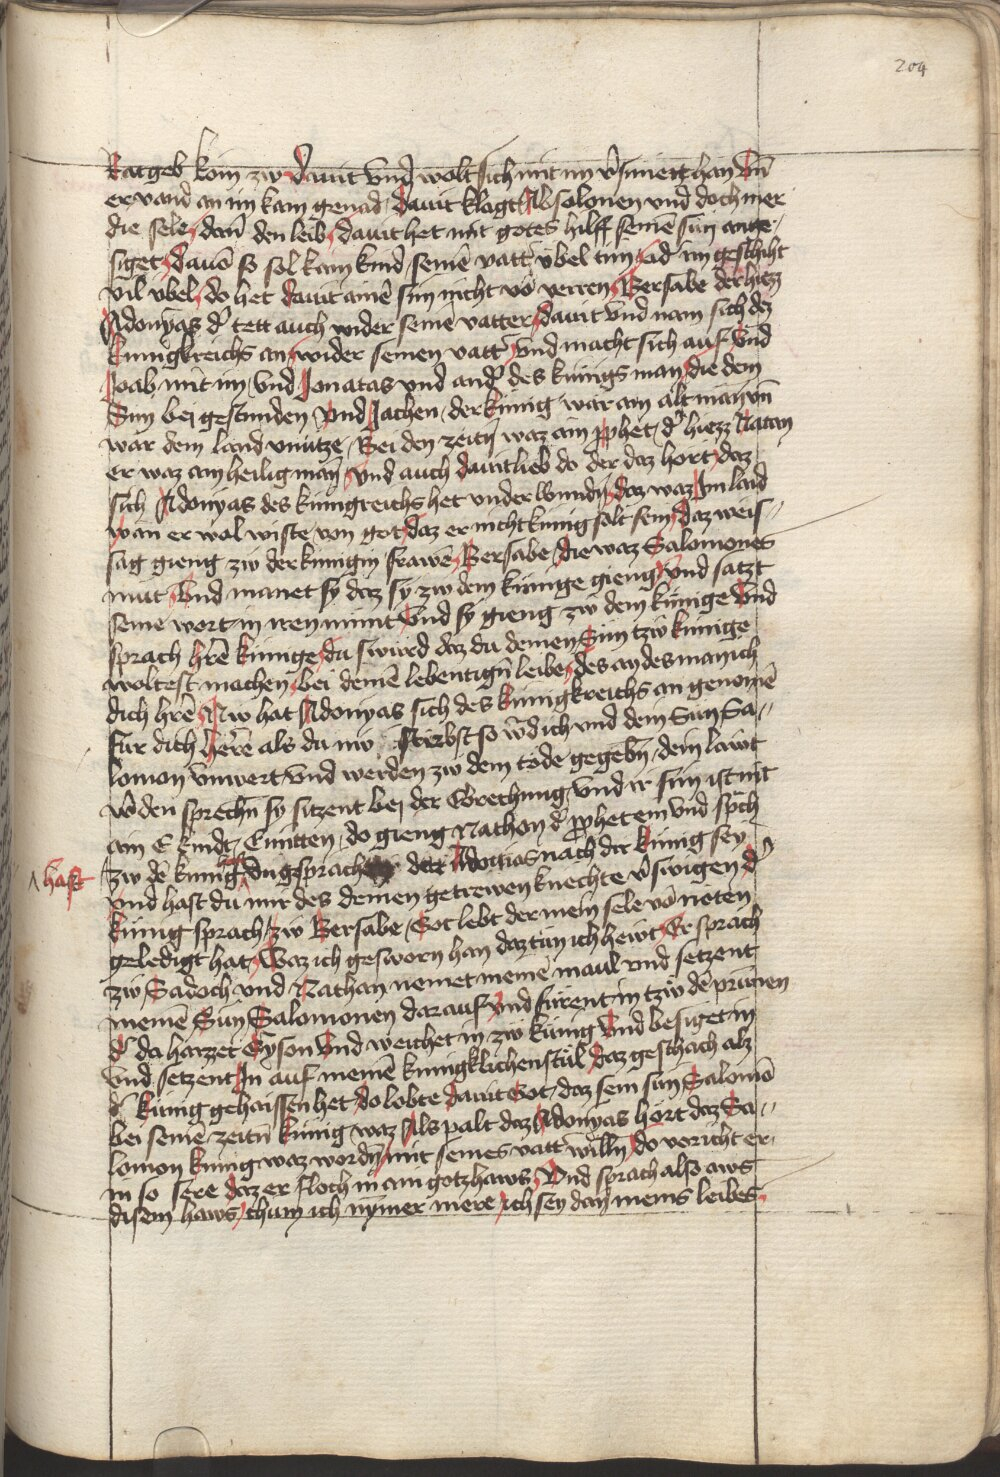 204
Ratgeb kom zw Dauit vnd wolt sich mit im v̾sunett han Vn̄
er vand an im kain genad, dauit klagt Absolonen vnd doch mer
die sele, dan̄ den leib, dauit het mit gotes hilff seinē sun ange„
siget, dauō so sol kain kind seinē vatt̾ vbel tun, Ed im geschiht
vil vbel, do het dauit ainē sun nicht vō verren, Bersabe der hiezz
Adonyas d̾ tett auch wider seinē vatter, dauit vnd nam sich dez
kunigkreichs an, wider seinen vatt̾, vnd macht sich auf, vnd
Joab mit im, vnd Jonatas vnd and̾ des kunigs man, die dem
Sun bei gestunden, vnd Jachen, der kunig wär ain alt man vn̄
wär dem land vnutze, Bei den zeitn̄ waz ain p̄phet, d̾ hiezz Natan
er waz ain heilig man, vnd auch dauit lieb do der daz hört, daz
sich Adonyas des kunigreichs het vnderwundn̄, daz waz Im laid
wan er wol wiste von got, daz er nicht kunig solt sein, daz weis„
sag gieng zw der kunigin frawē, Bersabe, die waz Salomones
mut̾, Vnd manet sy daz sy zw dem kunige gieng, vnd satzt
seine wort in iren munt, vnd sy gieng zw dem kunige Vnd
sprach h̾rē kunige, du swürd daz du deinen Sun tzw kunige
woltest machen, bei deinē lebentign̄ leibe, des an des man ich
dich h̾rē, Nw hat Adonyas sich des kunigkreichs an genomē
für dich h̾rē als du nw stirbst so w̾d ich vnd dein Sun Sa„
lomon vnwert, vnd werden zw dem tode gegebn̄, dein lawt
w̾den sprechn̄ sy sitzent bei der Ebrechung, vnd ir sun ist nit
ain E kindt, Enmitten, do gieng Nathon d̾ p̄phet ein vnd sp̄ch
zw dē kunig, Vn̄ gesprach dett Adonias nach dir kunig sey
hast
vnd hast du mir des deinen getrewen knechte v̾swigen d̾
kunig sprach, zw Bersabe, Got lebt der mein sele vō nöten
geledigt hat, Waz ich gesworn han daz tün ich hewt, Er sprach
zw Sadoch vnd Nathan nemet meinē maul vnd setzent
meinē Sun Salomonen darauf vnd fürent in tzw dē prunen
d̾ da haizzet Gyson vnd weichet in zw kunig vnd besiget in
vnd setzent In auf meinē kunigklichen stül, daz geschach alz
d̾ kunig gehaissen het, do lobte dauit Got, daz sein sun Salomō
bei seinē zeitn̄ kunig waz, Als palt daz Adonyas hört daz Sa„
lomon kunig waz wordn̄, mit seines vatt̾ willn̄, do vorcht er
im so sere daz er floch in ain gotzhaws, Vnd sprach also aws
disem haws, chum ich nymer mere, ich sey dan meins leibes,